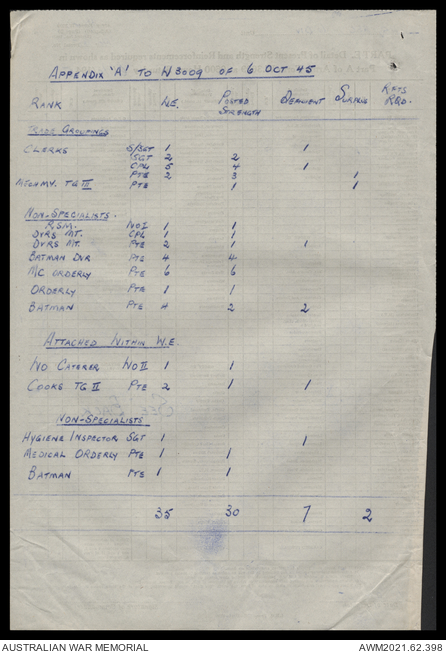 APPENDIX 'A' TO W3009 OF 6 OCT 45
RANK W.E. POSTED STRENGTH DEFICIENT SURPLUS RFTS RQD.
TRADE GROUPINGS
CLERKS S/SGT 1 1
SGT 2 2
CPL 5 4 1
PTE 2 3 1
TG III PTE 1 1
NON-SPECIALISTS.
R.S.M. WO I 1 1
DVRS MT. CPL 1 1
DVRS MT. PTE 2 1 1
BATMAN DVR PTE 4 4
MC ORDERLY PTE 6 6
ORDERLY PTE 1 1
BATMAN PTE 4 2 2
ATTACHED WITHIN W.E.
WO CATERER WO II 1 1
COOKS TG II PTE 2 1 1
NON-SPECIALISTS
HYGIENE INSPECTOR SGT 1 1
MEDICAL ORDERLY PTE 1 1
BATMAN PTE 1 1
35 30 7 2
AUSTRALIAN WAR MEMORIAL AWM2021.62.398